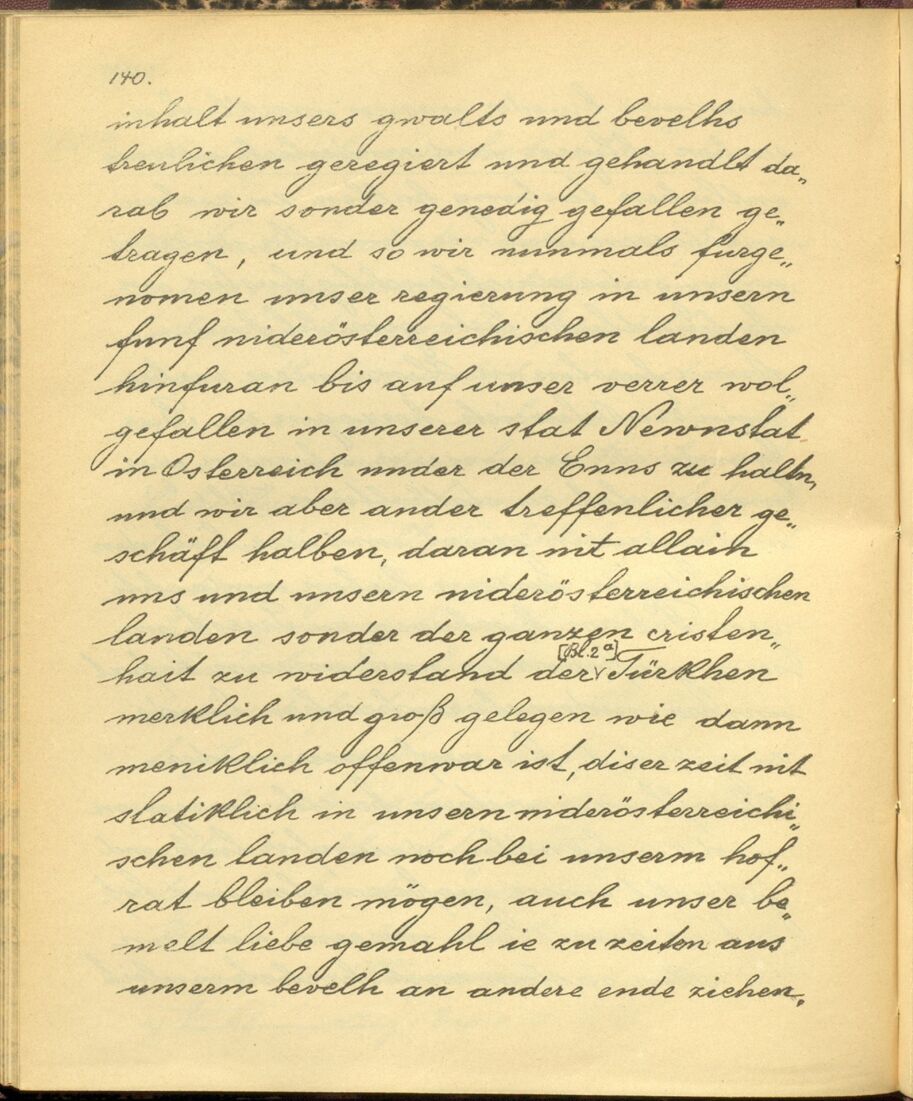 140.
inhalt unsers gwalts und bevelhs
treulichen geregiert und gehandlt da„
rab wir sonder genedig gefallen ge„
tragen, und so wir nunmals furge„
nomen unser regierung in unsern
funf niderösterreichischen landen
hinfuran bis auf unser verrer wol„
gefallen in unserer stat Newnstat
in Österreich under der Enns zu haltn,
und wir aber ander treffenlicher ge„
schäft halben, daran nit allain
uns und unsern niderösterreichischen
landen sonder der ganzen cristen„
hait zu widerstand der [Bl. 2a] Türkhen
merklich und groß gelegen wie dann
meniklich offenwar ist, diser zeit nit
statiklich in unsern niderösterreichi„
schen landen noch bei unserm hof„
rat bleiben mögen, auch unser be„
melt liebe gemahl ie zu zeiten aus
unserm bevelh an andere ende ziehen,